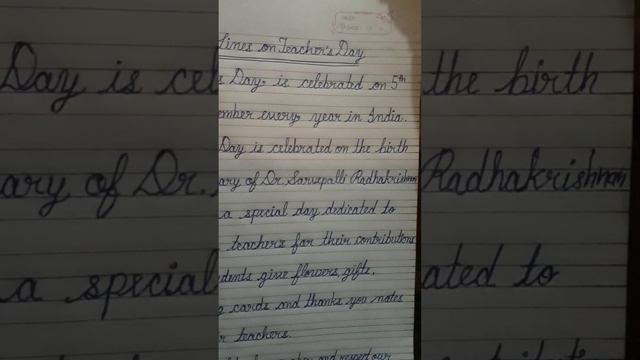 Lines on Teacher's Day
s Day. is celebrated on 5th
ember every year in India.
Day is celebrated on the birth
ary of Dr. Sarvepalli Radhakrishnan
a special day dedicated to
teachers for their contributions
dents give flowers, gifts,
cards and thanks you notes
r teachers.